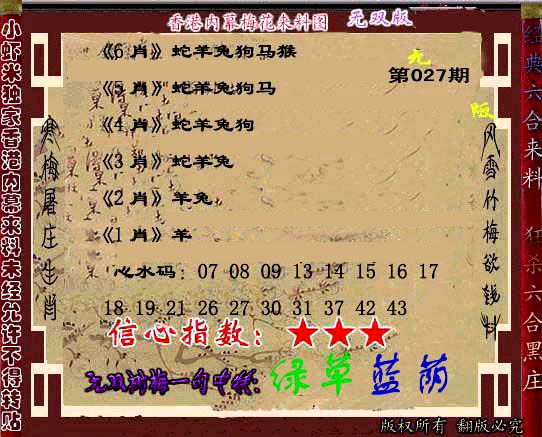 香港内幕梅花来料图 无双版
《6 肖》蛇羊兔狗马猴
第027期
《5 肖》蛇羊兔狗马
《4 肖》蛇羊兔狗
《3 肖》蛇羊兔
《2 肖》羊兔
《1 肖》羊
心水码：07 08 09 13 14 15 16 17
18 19 21 26 27 30 31 37 42 43
信心指数：★★★
绿草蓝荫
版权所有 翻版必究
小虾米独家香港内幕来料未经允许不得转贴
寒梅屠庄生肖
无
版
风雪竹梅欲钱料
经典六合来料
狂杀六合黑庄